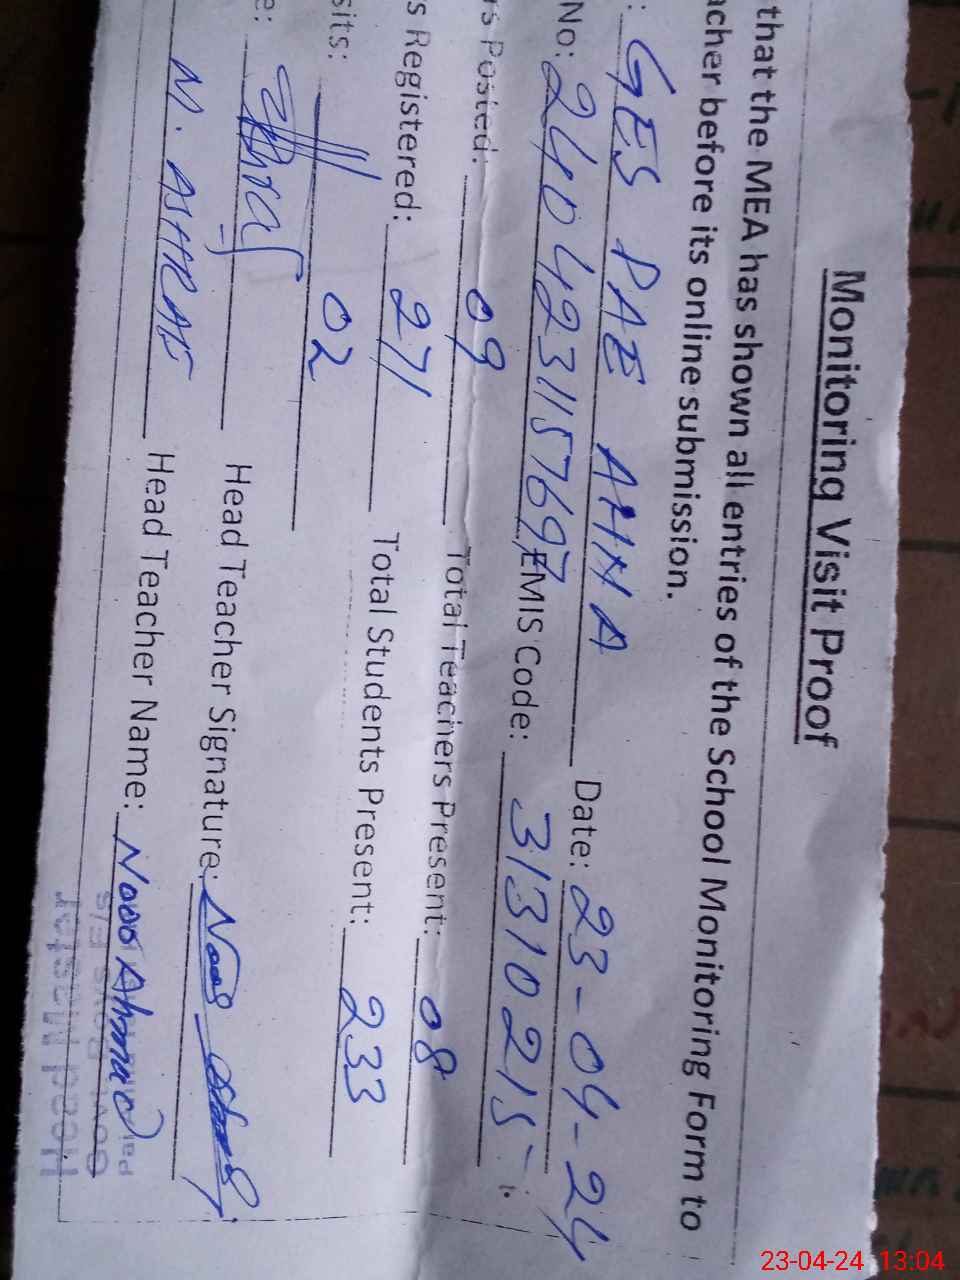 Monitoring Visit Proof
that the MEA has shown all entries of the School Monitoring Form to
acher before its online submission.
: GES PAE AHHA Date: 23-04-24
No: 24042311157697 EMIS Code: 31310215
rs Posted: 09 Total Teachers Present: 08
s Registered: 271 Total Students Present: 233
sits: 02
e: Head Teacher Signature:
M. ASHRAF Head Teacher Name: Noor Ahmad
Head Master
23-04-24 13:04